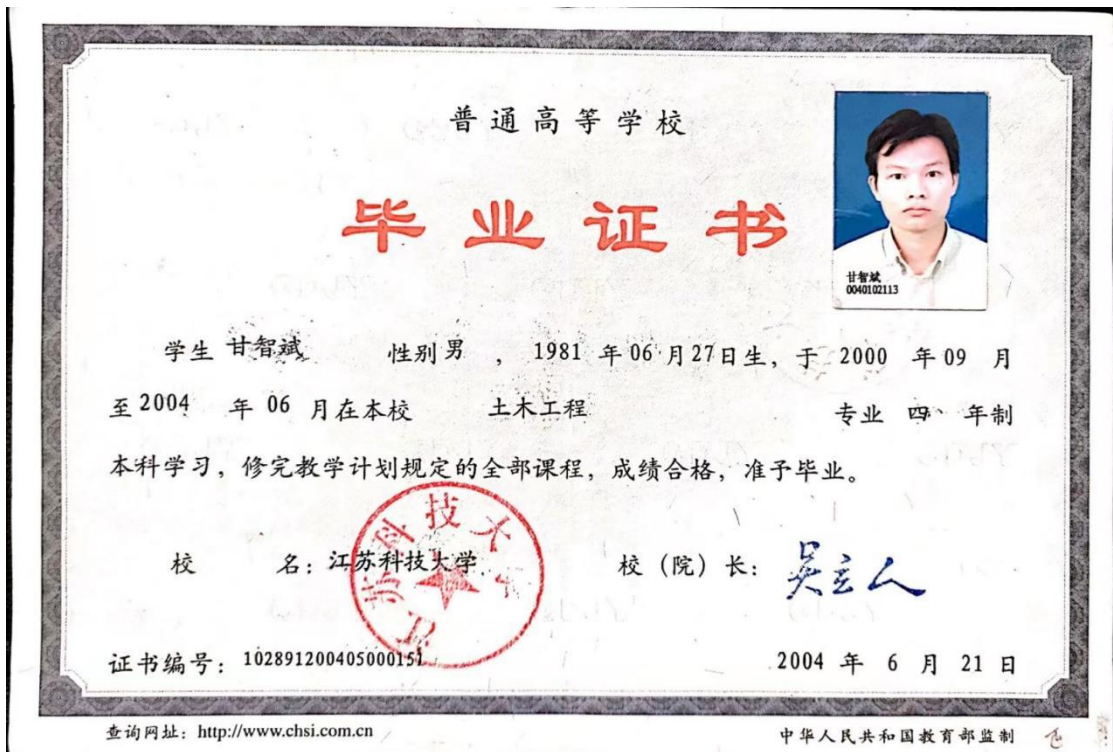 普通高等学校
毕业证书
甘智斌
0040102113
学生 甘智斌 性别 男 ， 1981 年 06 月 27 日生，于 2000 年 09 月
至 2004 年 06 月在本校 土木工程 专业 四 年制
本科学习，修完教学计划规定的全部课程，成绩合格，准予毕业。
江苏科技大学
校 名：江苏科技大学 校（院）长：吴立人
证书编号：102891200405000151 2004 年 6 月 21 日
查询网址：http://www.chsi.com.cn 中华人民共和国教育部监制